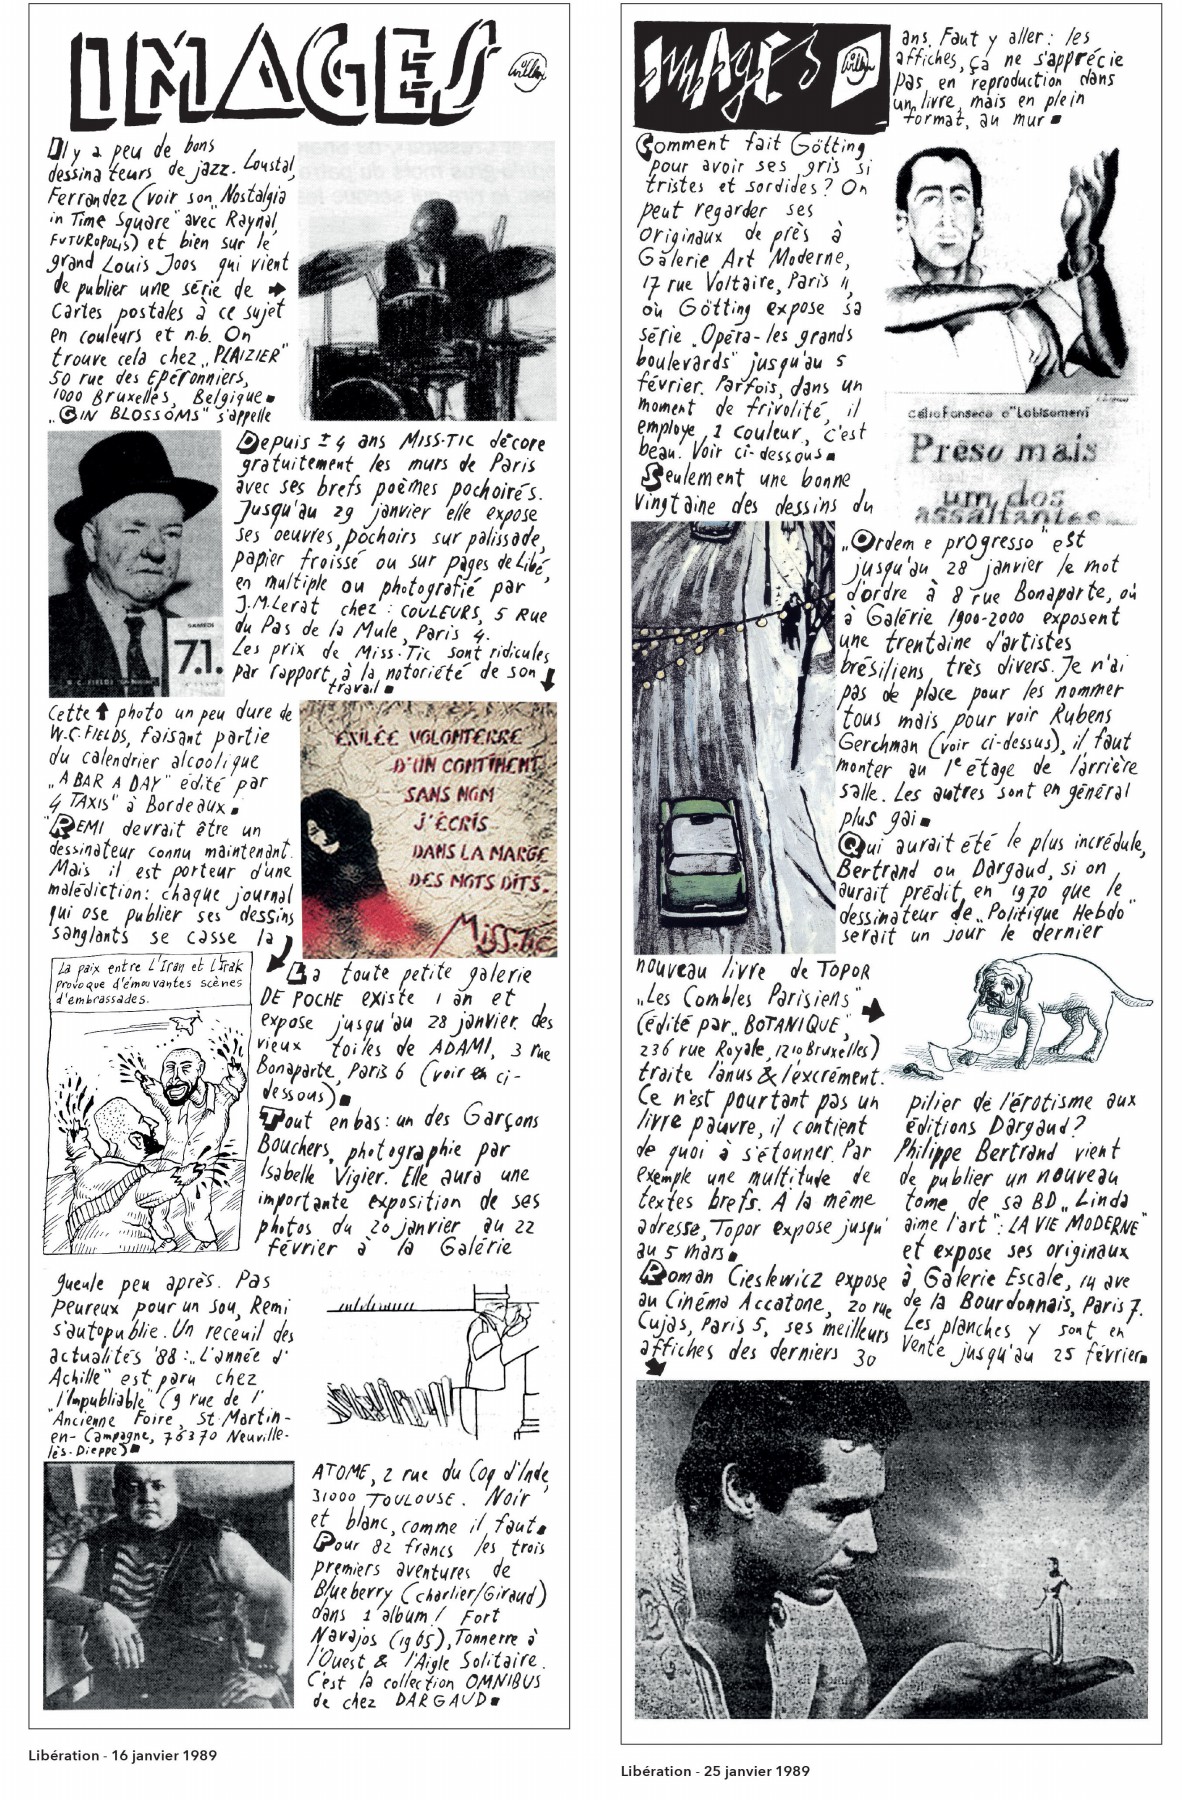 IMAGES
Willem
Il y a peu de bons
dessinateurs de jazz. Loustal,
Ferrandez (voir son „Nostalgia
in Time Square" avec Raynal,
FUTUROPOLIS) et bien sur le
grand Louis Joos qui vient
de publier une série de ➔
Cartes postales à ce sujet
en couleurs et n.b. On
trouve cela chez „PLAIZIER"
50 rue des Eperonniers,
1000 Bruxelles, Belgique.
„GIN BLOSSOMS" s'appelle
SAMEDI
7.1.
W.C. FIELDS
Cette ↑ photo un peu dure de
W.C. FIELDS, faisant partie
du calendrier alcoolique
„A BAR A DAY" édité par
„4 TAXIS" à Bordeaux.
REMI devrait être un
dessinateur connu maintenant.
Mais il est porteur d'une
malédiction: chaque journal
qui ose publier ses dessins
sanglants se casse la
La paix entre L'Iran et L'Irak
provoque d'émouvantes scènes
d'embrassades.
gueule peu après. Pas
peureux pour un sou, Remi
s'autopublie. Un receuil des
actualités '88: „L'année d'
Achille" est paru chez
„l'Impubliable" (9 rue de l'
Ancienne Foire, St-Martin-
en-Campagne, 76370 Neuville-
lès-Dieppe)
Depuis ± 4 ans MISS.TIC décore
gratuitement les murs de Paris
avec ses brefs poèmes pochoirés.
Jusqu'au 29 janvier elle expose
ses oeuvres, pochoirs sur palissade,
papier froissé ou sur pages de Libé,
en multiple ou photografié par
J.M.Lerat chez: COULEURS, 5 Rue
du Pas de la Mule, Paris 4.
Les prix de Miss.Tic sont ridicules
par rapport à la notoriété de son ↓
travail
EXILÉE VOLONTERRE
D'UN CONTINENT
SANS NOM
J'ÉCRIS
DANS LA MARGE
DES MOTS DITS.
MISS.TIC
La toute petite galerie
DE POCHE existe 1 an et
expose jusqu'au 28 janvier des
vieux toiles de ADAMI, 3 rue
Bonaparte, Paris 6 (voir ci-
dessous)
Tout en bas: un des Garçons
Bouchers, photographie par
Isabelle Vigier. Elle aura une
importante exposition de ses
photos du 20 janvier au 22
février à la Galérie
ATOME, 2 rue du Coq d'Inde,
31000 TOULOUSE. Noir
et blanc, comme il faut.
Pour 82 francs les trois
premiers aventures de
Blueberry (Charlier/Giraud)
dans 1 album! Fort
Navajos (1965), Tonnerre à
l'Ouest & l'Aigle Solitaire.
C'est la collection OMNIBUS
de chez DARGAUD
Libération - 16 janvier 1989
Images
Willem
Comment fait Götting
pour avoir ses gris si
tristes et sordides? On
peut regarder ses
originaux de près à
Galerie Art Moderne,
17 rue Voltaire, Paris 11,
où Götting expose sa
série „Opéra-les grands
boulevards" jusqu'au 5
février. Parfois, dans un
moment de frivolité, il
employe 1 couleur, c'est
beau. Voir ci-dessous.
Seulement une bonne
vingtaine des dessins du
nouveau livre de TOPOR
„Les Combles Parisiens" ➔
(édité par „BOTANIQUE",
236 rue Royale, 1210 Bruxelles)
traite l'anus & l'excrément.
Ce n'est pourtant pas un
livre pauvre, il contient
de quoi à s'étonner. Par
exemple une multitude de
textes brefs. A la même
adresse, Topor expose jusqu'
au 5 mars.
Roman Cieslewicz expose
au Cinéma Accatone, 20 rue
Cujas, Paris 5, ses meilleurs
affiches des derniers 30
ans. Faut y aller: les
affiches, ça ne s'apprécie
pas en reproduction dans
un livre, mais en plein
format, au mur
Celio Fonseca o "Lobisomem"
Prêso mais
um dos
assaltantes
„Ordem e progresso" est
jusqu'au 28 janvier le mot
d'ordre à 8 rue Bonaparte, où
à Galérie 1900-2000 exposent
une trentaine d'artistes
brésiliens très divers. Je n'ai
pas de place pour les nommer
tous mais pour voir Rubens
Gerchman (voir ci-dessus), il faut
monter au 1e étage de l'arrière
salle. Les autres sont en général
plus gai
Qui aurait été le plus incrédule,
Bertrand ou Dargaud, si on
aurait prédit, en 1970 que le
dessinateur de „Politique Hebdo"
serait un jour le dernier
pilier de l'érotisme aux
éditions Dargaud?
Philippe Bertrand vient
de publier un nouveau
tome de sa BD „Linda
aime l'art": LA VIE MODERNE"
et expose ses originaux
à Galerie Escale, 14 ave
de la Bourdonnais, Paris 7.
Les planches y sont en
vente jusqu'au 25 février
Libération - 25 janvier 1989